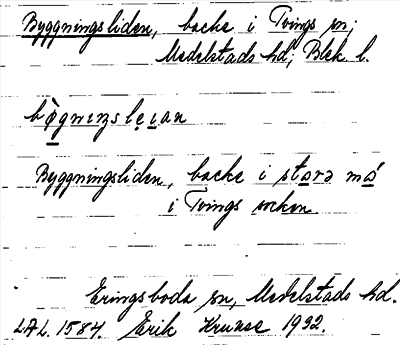 Byggningsliden, backe i Tvings sn;
Medelstads hd; Blek. l.
Byggningsliden, backe i storə må
i Tvings socken.
Eringsboda sn, Medelstads hd.
LAL. 1584. Erik Kruuse 1932.